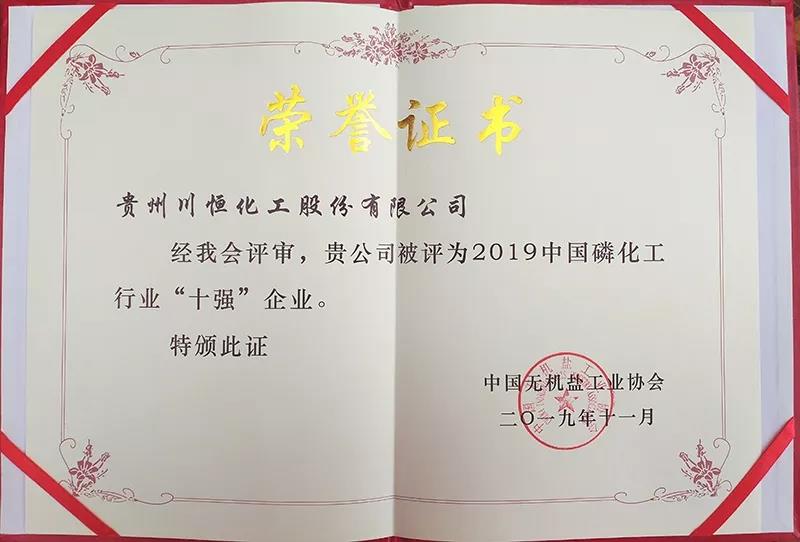 荣誉证书
贵州川恒化工股份有限公司
经我会评审，贵公司被评为2019中国磷化工
行业“十强”企业。
特颁此证
中国无机盐工业协会
二〇一九年十一月